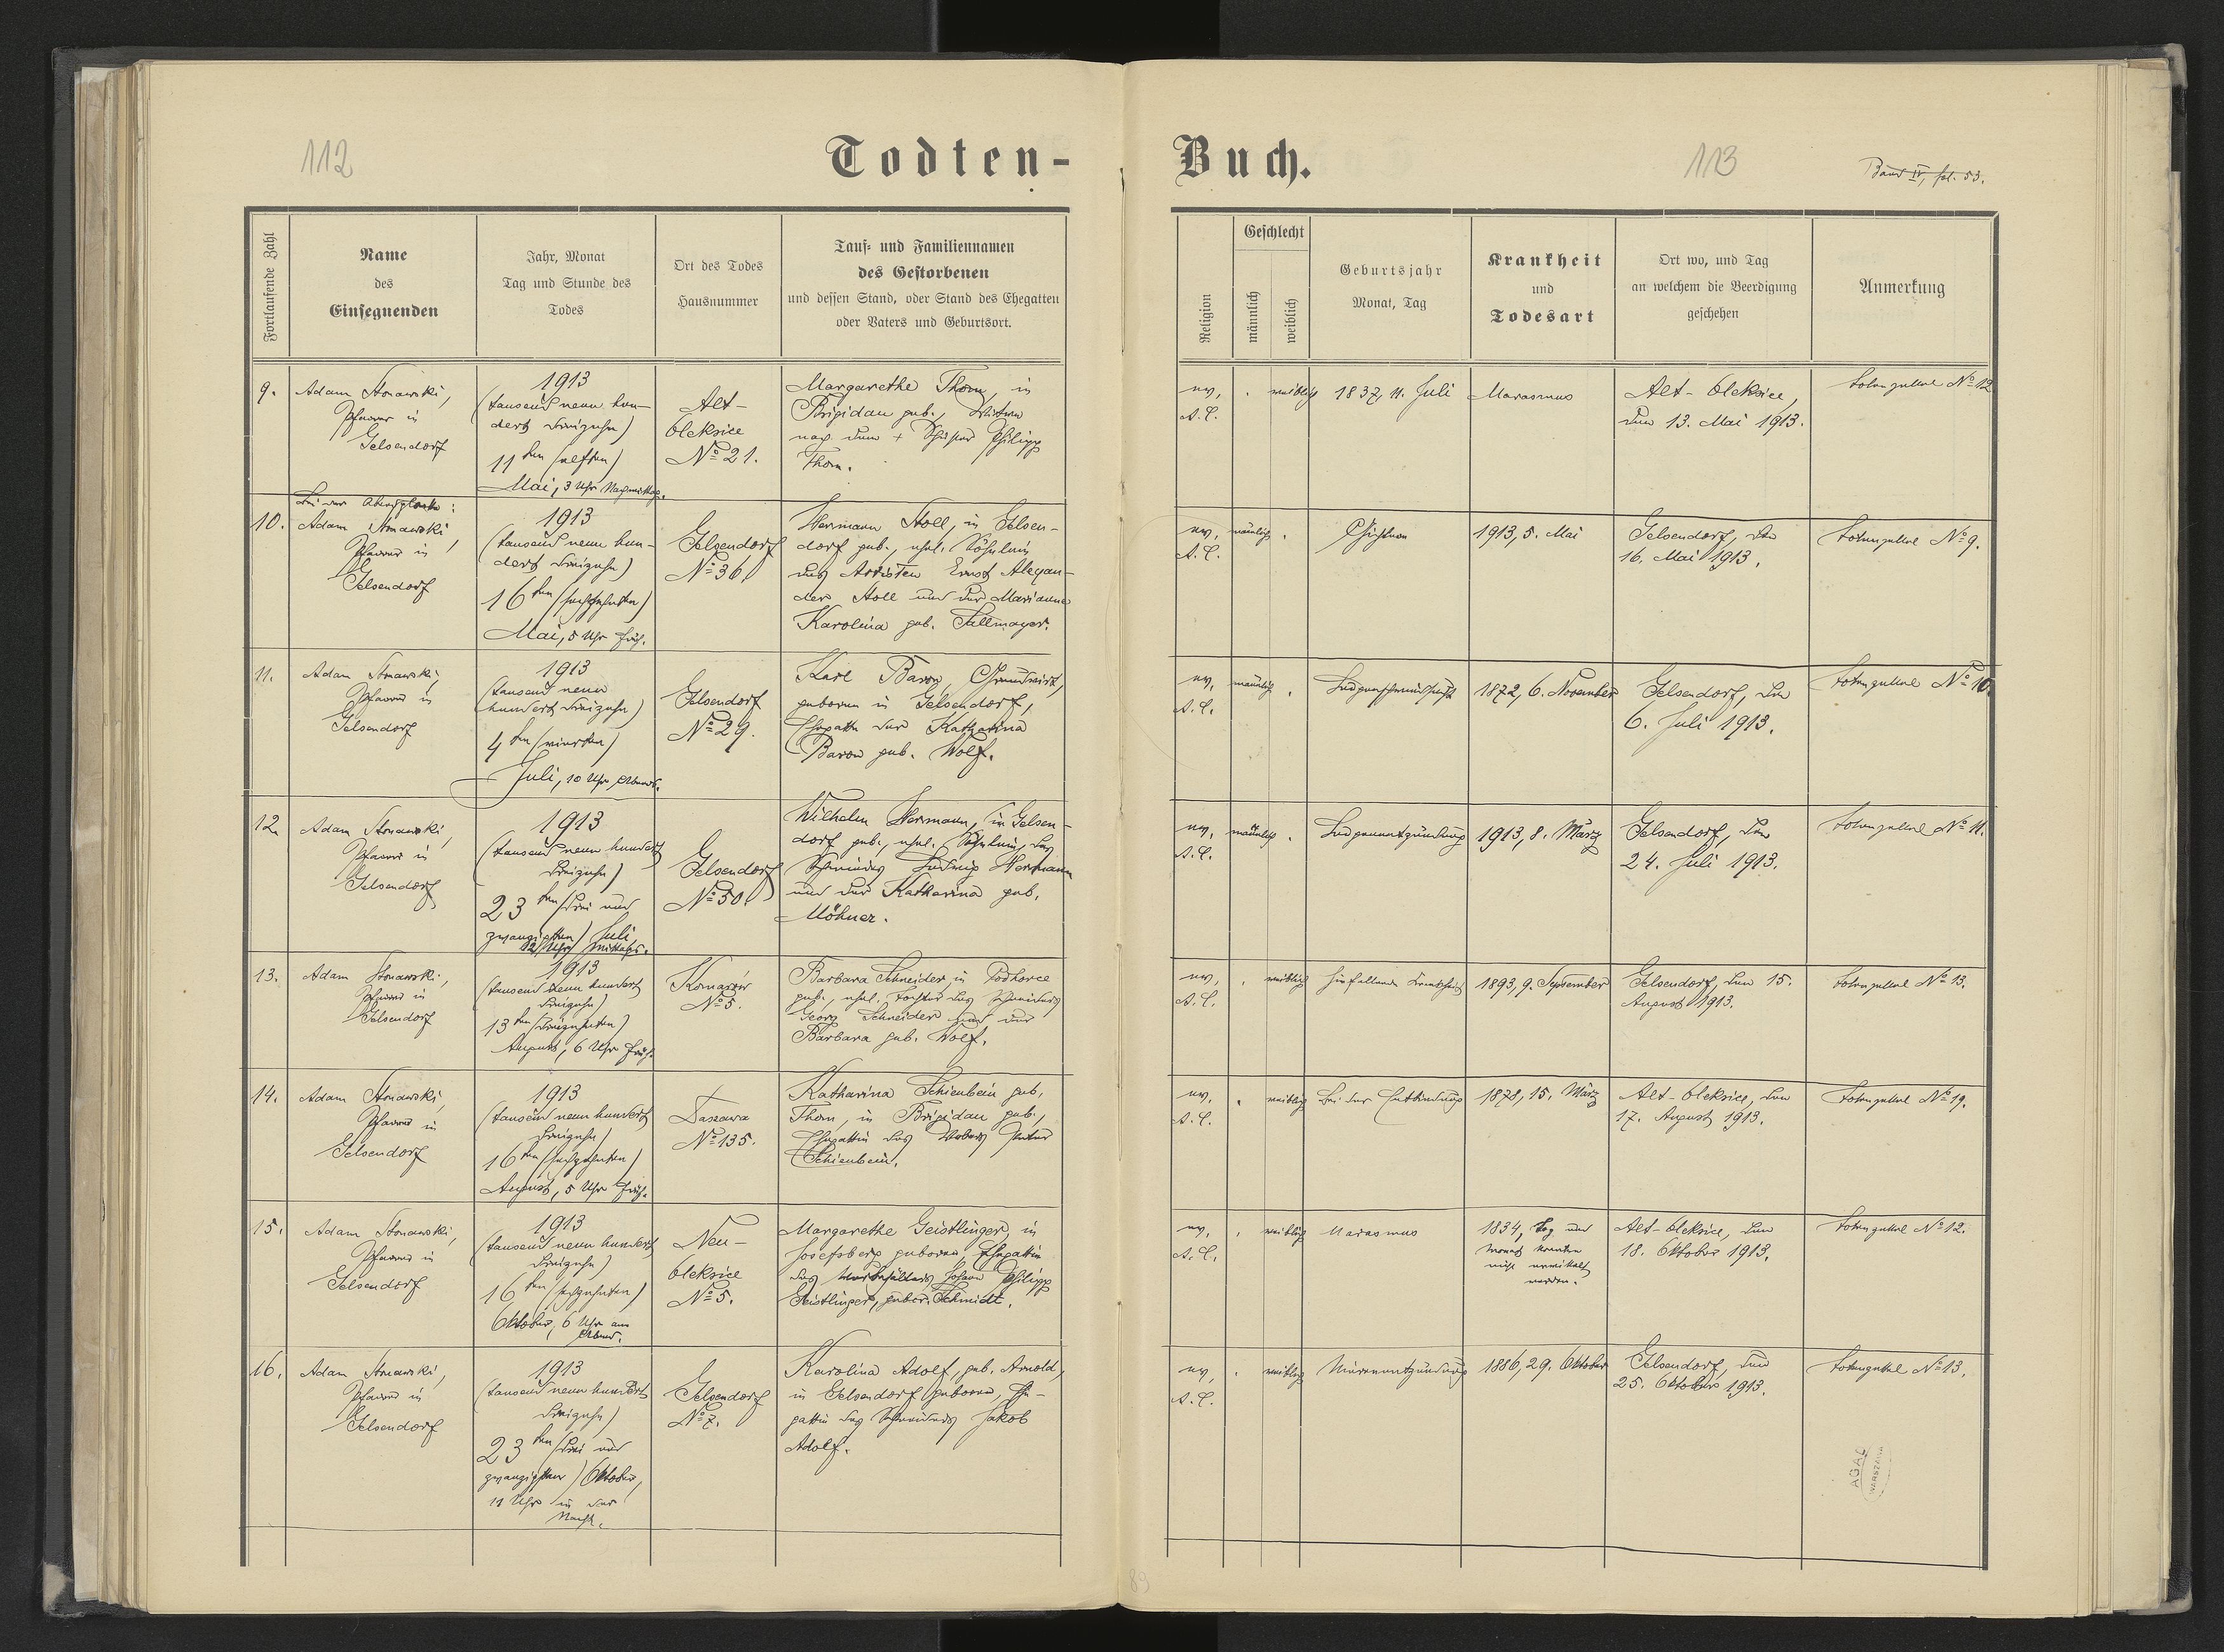 112
Todten-
Buch.
113
Band IV, fol. 53.
Fortlaufende Zahl
Name
des
Einsegnenden
Jahr, Monat
Tag und Stunde des
Todes
Ort des Todes
Hausnummer
Tauf- und Familiennamen
des Gestorbenen
und dessen Stand, oder Stand des Ehegatten
oder Vaters und Geburtsort.
Religion
Geschlecht
männlich
weiblich
Geburtsjahr
Monat, Tag
Krankheit
und
Todesart
Ort wo, und Tag
an welchem die Beerdigung
geschehen
Anmerkung
9.
Adam Stonawski,
Pfarrer in
Gelsendorf
1913
(tausend neun hun-
dert dreizehn)
11ten (elften)
Mai, 3 Uhr Nachmittag.
Alt-
Oleksice
No 21.
Margarethe Thom, in
Brigidau geb., Witwe
nach dem + Philipp
Thom.
ev.
A.C.
weiblich
1837, 11. Juli
Marasmus
Alt-Oleksice,
den 13. Mai 1913.
No 12
10.
Adam Stonawski,
Pfarrer in
Gelsendorf
1913
(tausend neun hun-
dert dreizehn)
16ten (sechzehnten)
Mai, 5 Uhr früh.
Gelsendorf
No 36
Hermann Stoll, in Gelsen-
dorf geb., ehel. Söhnlein
des Artisten Ernst Alexan-
der Stoll und der Marianne
Karolina geb. Fallmayer.
ev.
A.C.
männlich
1913, 5. Mai
Gelsendorf, den
16. Mai 1913.
No 9.
11.
Adam Stonawski,
Pfarrer in
Gelsendorf
1913
(tausend neun
hundert dreizehn)
4ten (vierten)
Juli, 10 Uhr Abends.
Gelsendorf
No 29.
Karl Baron, Grundwirt,
geboren in Gelsendorf,
Ehegatte der Katharina
Baron geb. Wolf.
ev.
A.C.
männlich
1872, 6. November
Gelsendorf, den
6. Juli 1913.
No 10.
12.
Adam Stonawski,
Pfarrer in
Gelsendorf
1913
(tausend neun hundert
dreizehn)
23ten (drei und
zwanzigsten) Juli
12 Uhr mittags.
Gelsendorf
No 50
Wilhelm Hermann, in Gelsen-
dorf geb., ehel. Söhnlein des
Schneiders Ludwig Hermann
und der Katharina geb.
Möhner.
ev.
A.C.
männlich
Lungenentzündung
1913, 8. März
Gelsendorf, den
24. Juli 1913.
No 11.
13.
Adam Stonawski,
Pfarrer in
Gelsendorf
1913
(tausend neun hundert
dreizehn)
13ten (dreizehnten)
August, 6 Uhr früh.
Komarów
No 5.
Barbara Schneider, in Podhorce
geb., ehel. Tochter des Schneiders
Georg Schneider und der
Barbara geb. Wolf.
ev.
A.C.
weiblich
Hinfallende Krankheit
1893, 9. September
Gelsendorf, den 15.
August 1913.
No 13.
14.
Adam Stonawski,
Pfarrer in
Gelsendorf
1913
(tausend neun hundert
dreizehn)
16ten (sechzehnten)
August, 5 Uhr früh.
Daszawa
No 135.
Katharina Schienbein geb.
Thom, in Brigidau geb.,
Ehegattin des Webers Peter
Schienbein.
ev.
A.C.
weiblich
Bei der Entbindung
1878, 15. März
Alt-Oleksice, den
17. August 1913.
No 19.
15.
Adam Stonawski,
Pfarrer in
Gelsendorf
1913
(tausend neun hundert
dreizehn)
16ten (sechzehnten)
Oktober, 6 Uhr am
Abend.
Neu-
Oleksice
No 5.
Margarethe Geistlinger, in
Josefsberg geboren, Ehegattin
des Johann Philipp
Geistlinger, gebor. Schmidt.
ev.
A.C.
weiblich
Marasmus
1834, Tag und
Monat konnten
nicht ermittelt
werden.
Alt-Oleksice, den
18. Oktober 1913.
No 12.
16.
Adam Stonawski,
Pfarrer in
Gelsendorf
1913
(tausend neun hundert
dreizehn)
23ten (drei und
zwanzigsten) Oktober,
11 Uhr in der
Nacht.
Gelsendorf
No 7.
Karolina Adolf, geb. Arnold,
in Gelsendorf geboren, Ehe-
gattin des Schneiders Jakob
Adolf.
ev.
A.C.
weiblich
Nierenentzündung
1886, 29. Oktober
Gelsendorf, den
25. Oktober 1913.
No 13.
AGAD
WARSZAWA
89